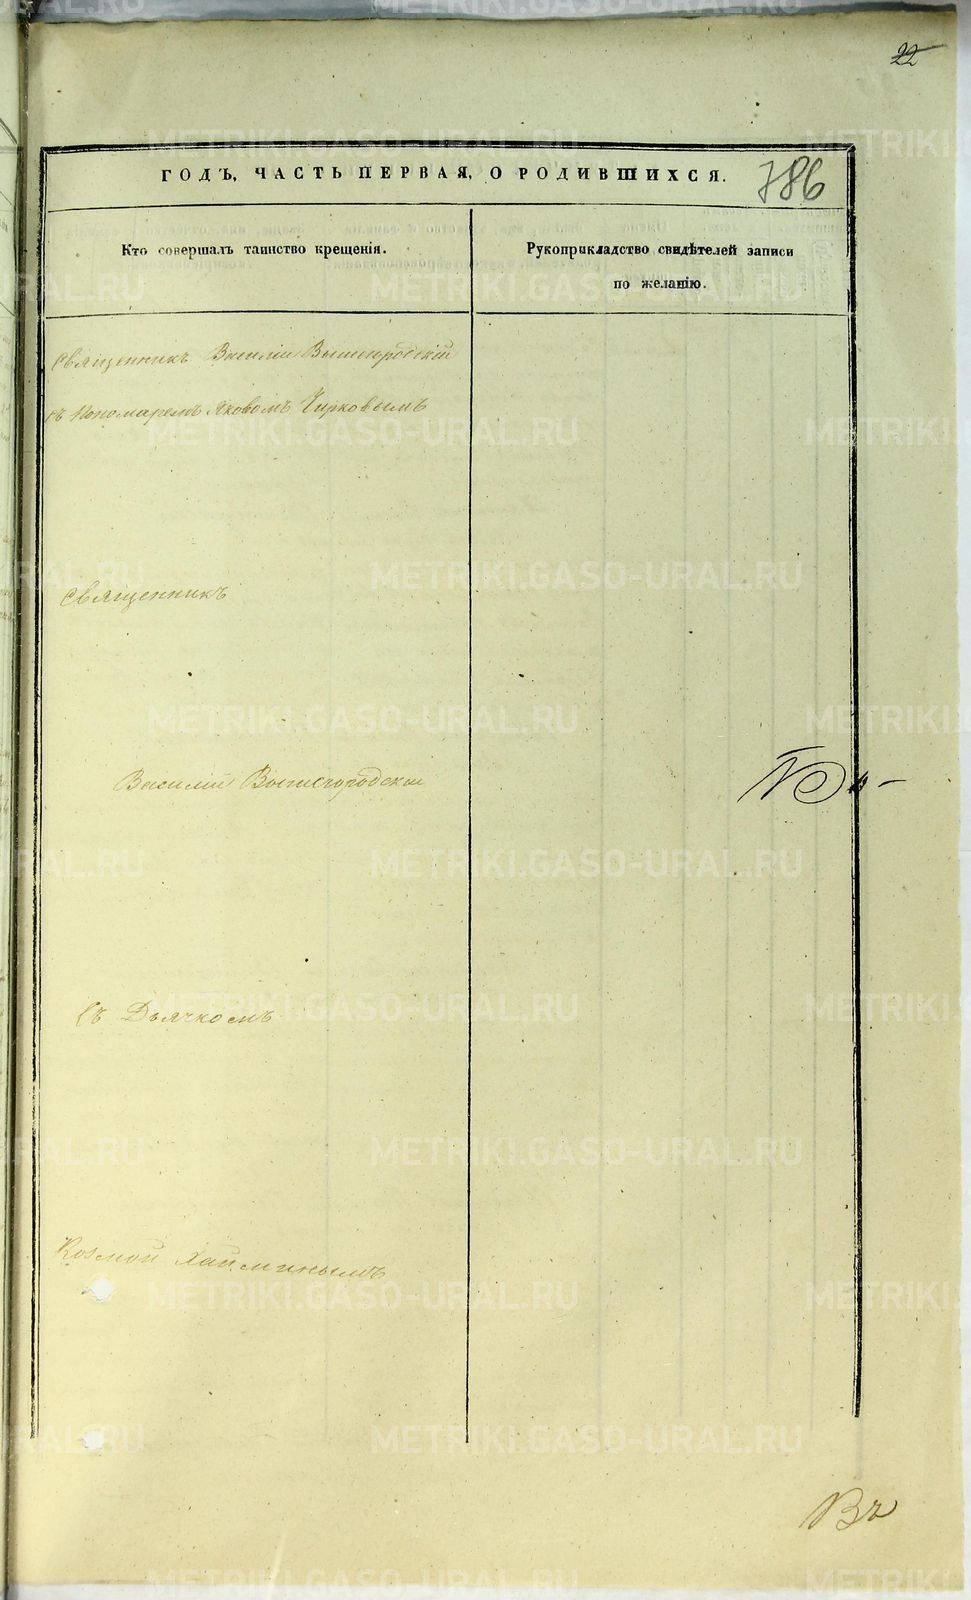 22
ГОДЪ, ЧАСТЬ ПЕРВАЯ, О РОДИВШИХСЯ.
786
Кто совершалъ таинство крещенія.
Рукоприкладство свидѣтелей записи
по желанію.
Священникъ Василій Вышегородскій
съ Пономаремъ Яковомъ Чирковымъ
Священникъ
Василій Вышегородскій
Съ Дьячкомъ
Козмой Хайминымъ
Въ
METRIKI.GASO-URAL.RU